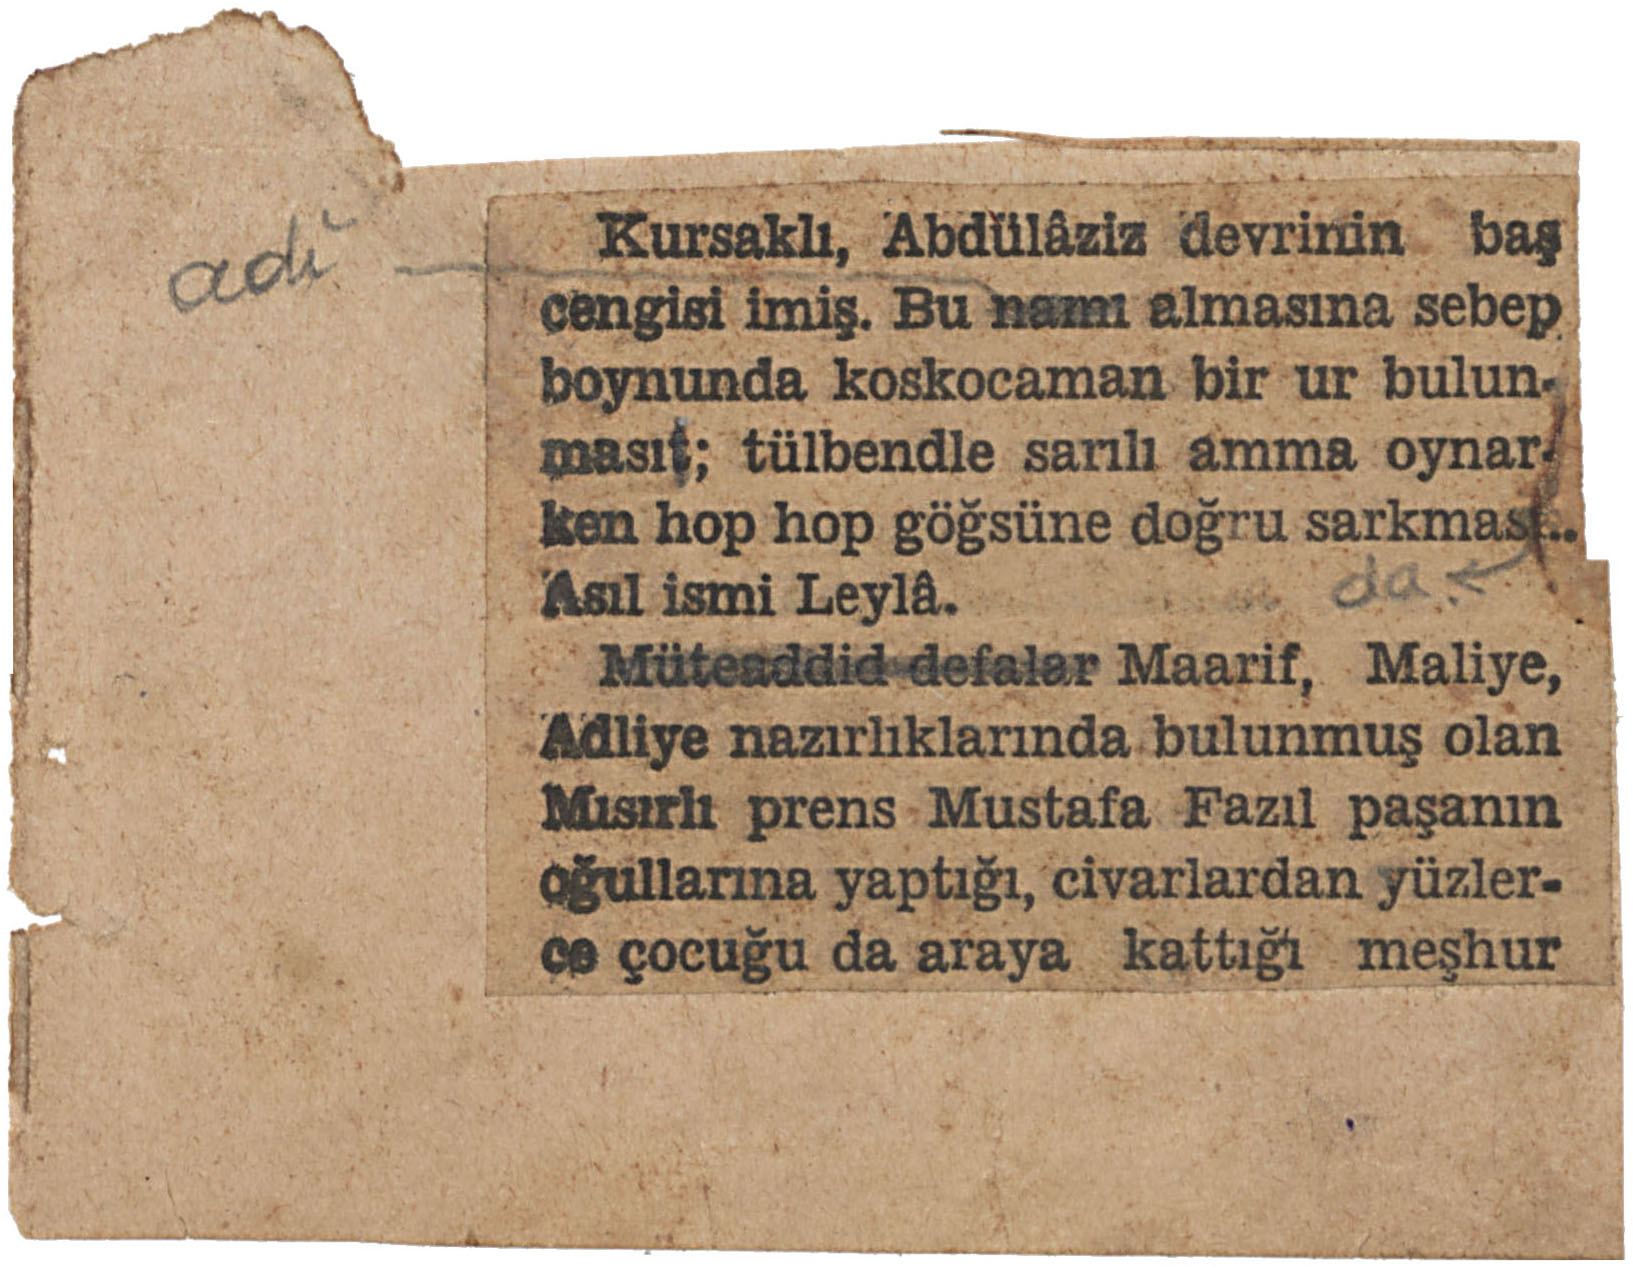 Kursaklı, Abdülâziz devrinin baş
adı
cengisi imiş. Bu namı almasına sebep
boynunda koskocaman bir ur bulun-
masıt; tülbendle sarılı amma oynar-
ken hop hop göğsüne doğru sarkması..
Asıl ismi Leylâ.
da
Müteaddid defalar Maarif, Maliye,
Adliye nazırlıklarında bulunmuş olan
Mısırlı prens Mustafa Fazıl paşanın
oğullarına yaptığı, civarlardan yüzler-
ce çocuğu da araya kattığı meşhur